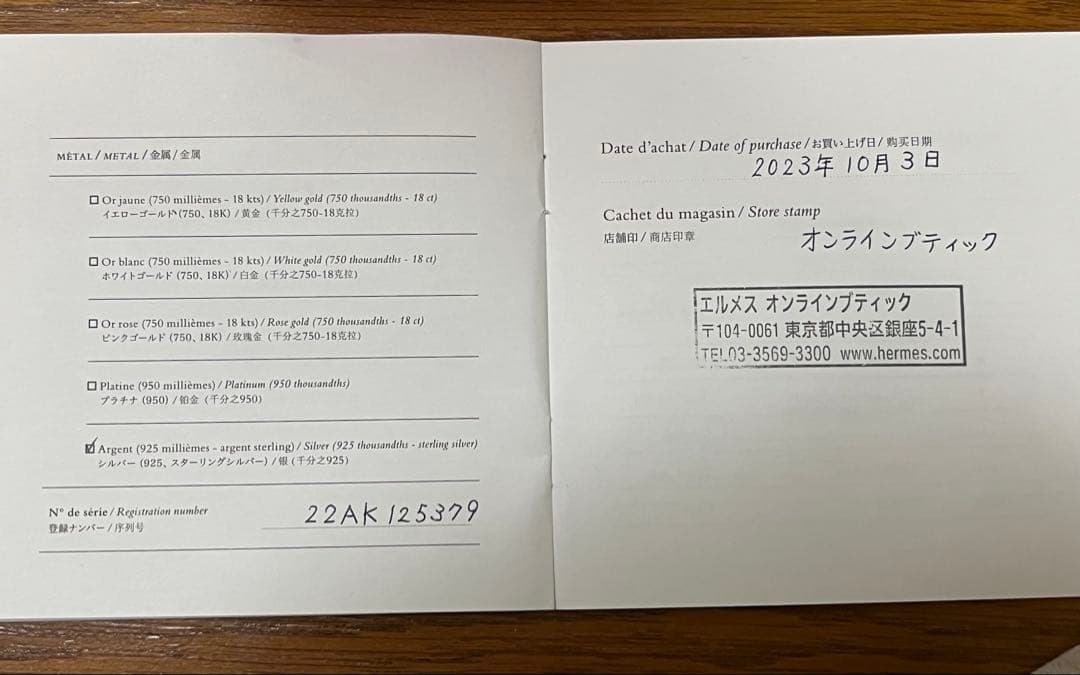 MÉTAL / METAL / 金属 / 金属
Or jaune (750 millièmes - 18 kts) / Yellow gold (750 thousandths - 18 ct)
イエローゴールド (750、18K) / 黄金（千分之750-18克拉）
Or blanc (750 millièmes - 18 kts) / White gold (750 thousandths - 18 ct)
ホワイトゴールド (750、18K) / 白金（千分之750-18克拉）
Or rose (750 millièmes - 18 kts) / Rose gold (750 thousandths - 18 ct)
ピンクゴールド (750、18K) / 玫瑰金（千分之750-18克拉）
Platine (950 millièmes) / Platinum (950 thousandths)
プラチナ (950) / 铂金（千分之950）
Argent (925 millièmes - argent sterling) / Silver (925 thousandths - sterling silver)
シルバー (925、スターリングシルバー) / 银（千分之925）
N° de série / Registration number
登録ナンバー / 序列号
22AK125379
Date d'achat / Date of purchase / お買い上げ日 / 购买日期
2023年10月3日
Cachet du magasin / Store stamp
店舗印 / 商店印章
オンラインブティック
エルメス オンラインブティック
〒104-0061 東京都中央区銀座5-4-1
TEL03-3569-3300 www.hermes.com